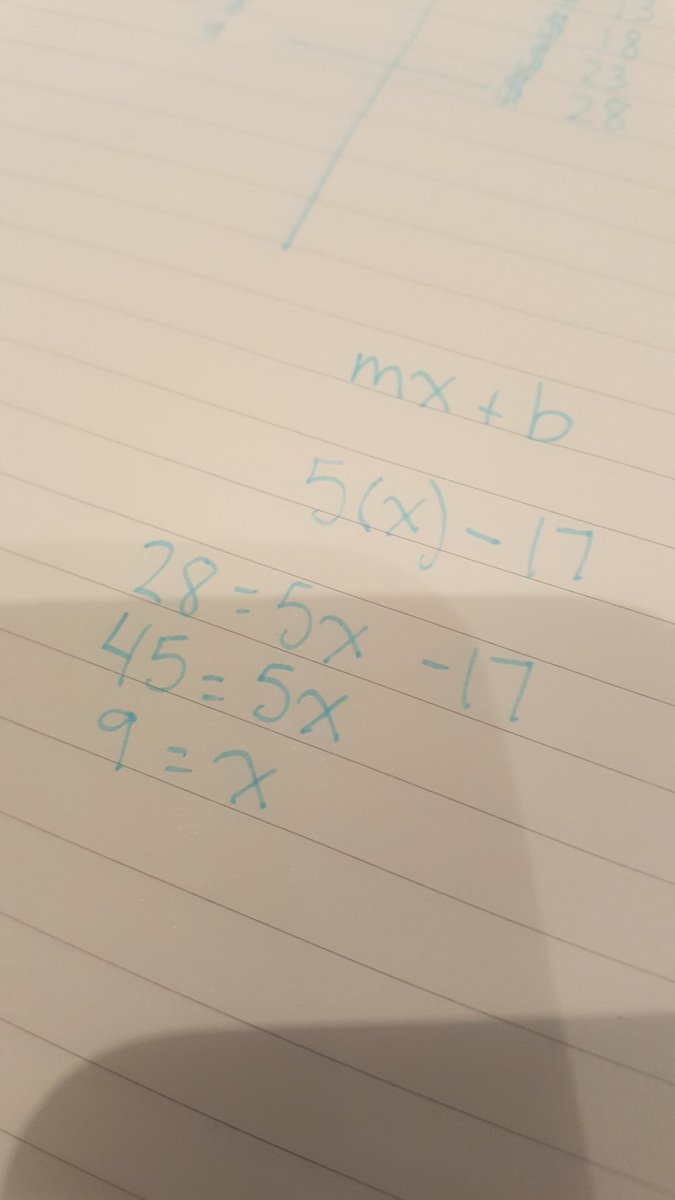 13
18
23
28
mx + b
5(x) - 17
28 = 5x - 17
45 = 5x
9 = x